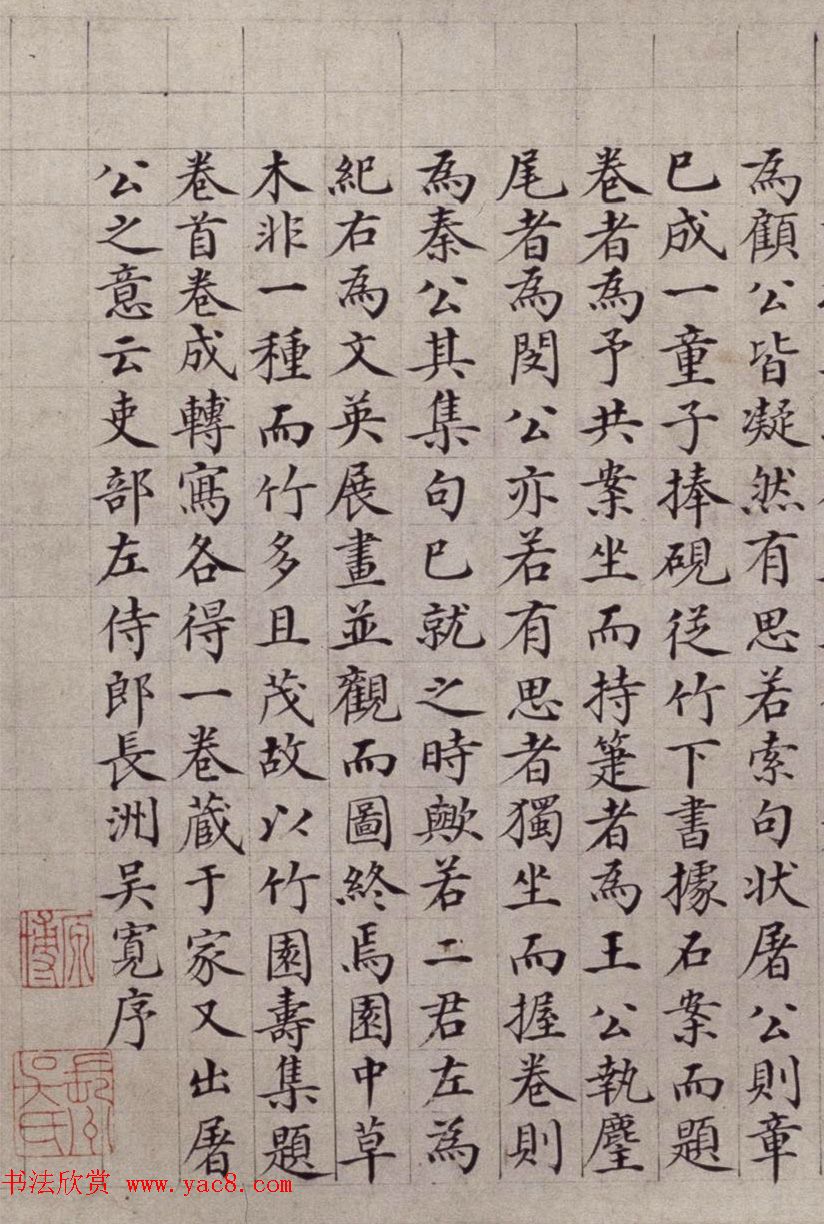 為顧公皆凝然有思若索句状屠公則章
已成一童子捧硯從竹下書據石案而題
卷者為予共案坐而持箑者為王公執麈
尾者為閔公亦若有思者獨坐而握卷則
為秦公其集句已就之時歟若二君左為
紀右為文英展畫並觀而圖終焉園中草
木非一種而竹多且茂故以竹園壽集題
卷首卷成轉寫各得一卷藏于家又出屠
公之意云吏部左侍郎長洲吳寬序
原博
長州吳氏
书法欣赏 www.yac8.com